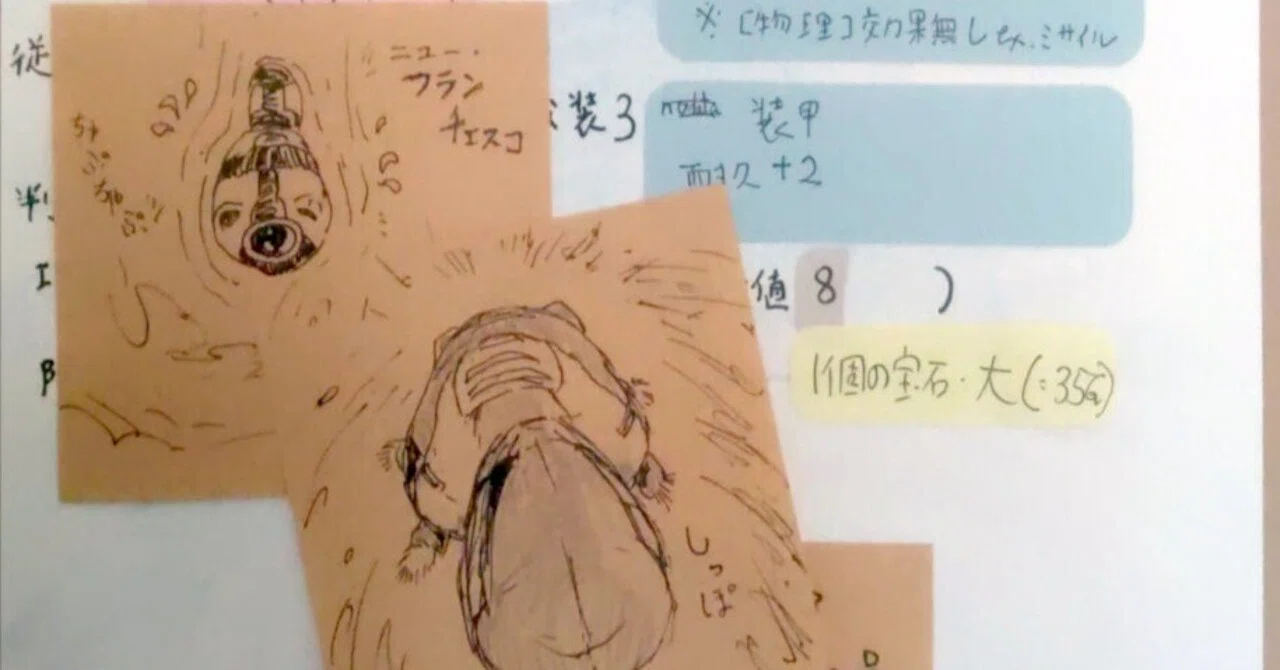 ※[物理]効果無し ex.ミサイル
従
ニュー・
フラン
チェスコ
ちゃ
ぷ
ちゃ
ぷ
装3
装甲
耐久+2
判
値 8 )
1個の宝石・大(=35G)
しっぽ